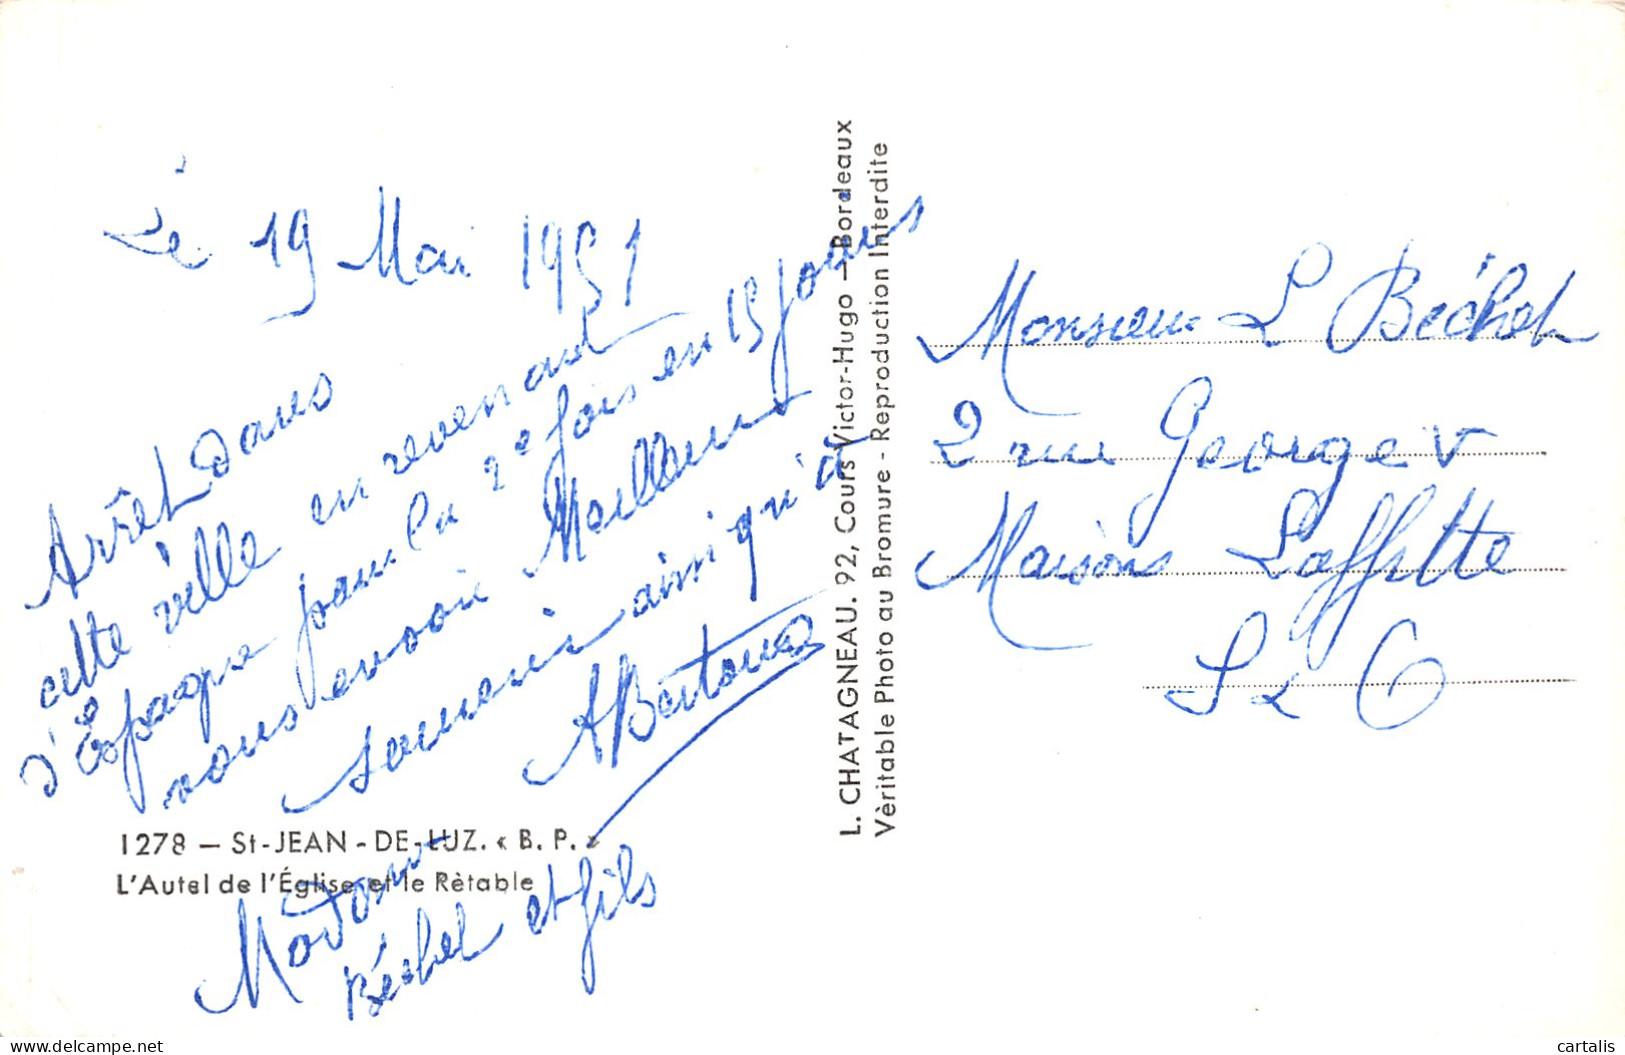 Le 19 Mai 1951
Arrêt dans
cette ville en revenant
d'Espagne pour la 2e fois en 15 jours
vous envoie Meilleurs
souvenirs ainsi qu'à
ABertoud
Madame
Béchet et fils
1278 — St-JEAN-DE-LUZ. « B. P. »
L'Autel de l'Église et le Rètable
L. CHATAGNEAU. 92, Cours Victor-Hugo — Bordeaux
Vèritable Photo au Bromure - Reproduction Interdite
Monsieur L Béchet
2 rue George V
Maisons Laffitte
S & O
cartalis
delcampe.net